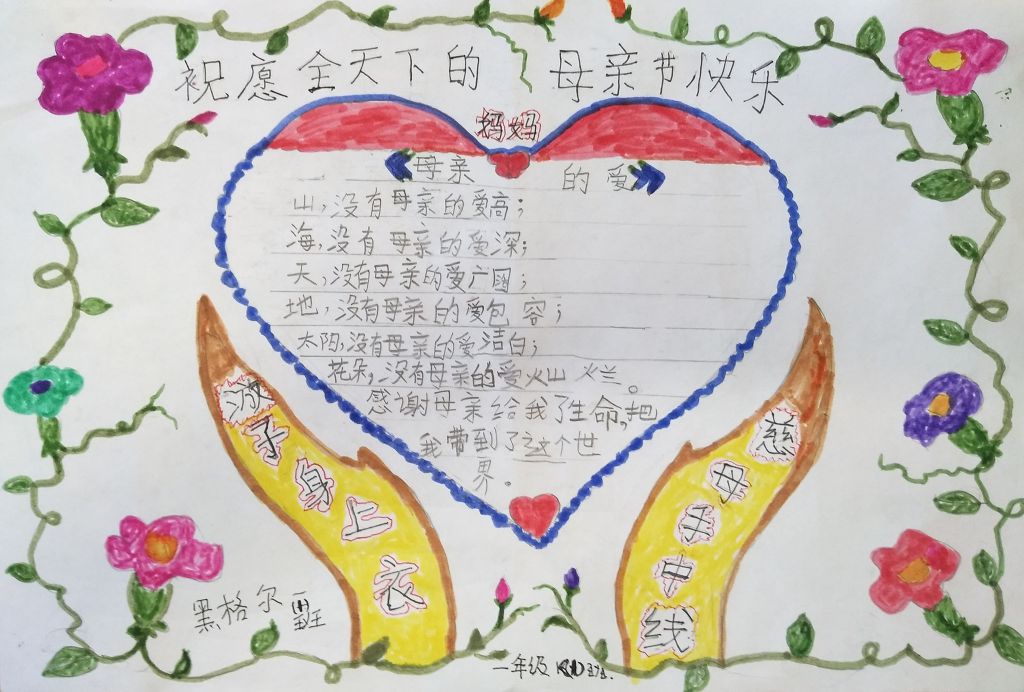 祝愿全天下的 母亲节快乐
妈妈
《母亲 的爱》
山,没有母亲的爱高;
海,没有母亲的爱深;
天,没有母亲的爱广;
地,没有母亲的爱包容;
太阳,没有母亲的爱洁白;
花朵,没有母亲的爱火山 火兰。
感谢母亲给我了生命,把
我带到了这个世
界。
慈母手中线
游子身上衣
黑格尔
一年级